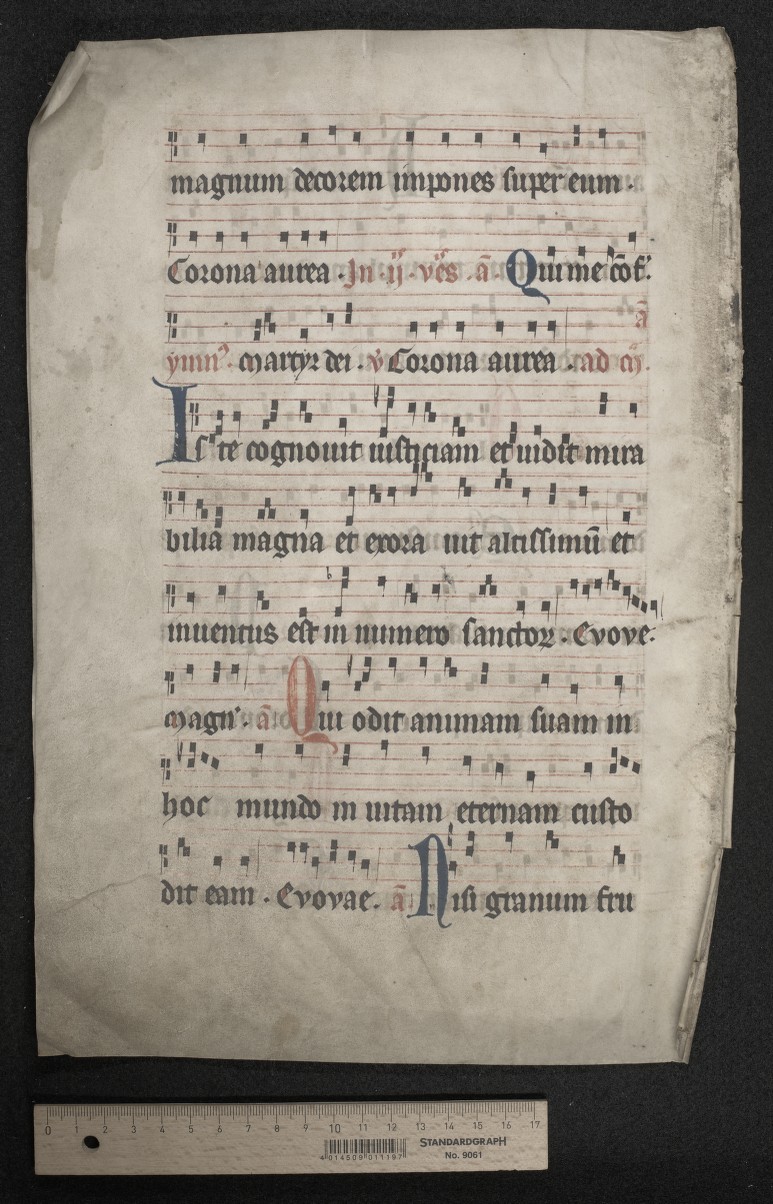 magnum decorem impones super eum.
Corona aurea. In .ij. v̄es ā Qui me cōf.
ā
ymn⁹. Martyr dei. v̄ Corona aurea. ad m̄.
Iste cognouit iusticiam et uidit mira
bilia magna et exora uit altissimū et
inuentus est in numero sanctoꝝ. Evove.
Magn̄. ā Qui odit animam suam in
hoc mundo in uitam eternam custo
dit eam. Evovae. ā Nisi granum fru
0 1 2 3 4 5 6 7 8 9 10 11 12 13 14 15 16 17
4 014509 011197
STANDARDGRAPH
No. 9061